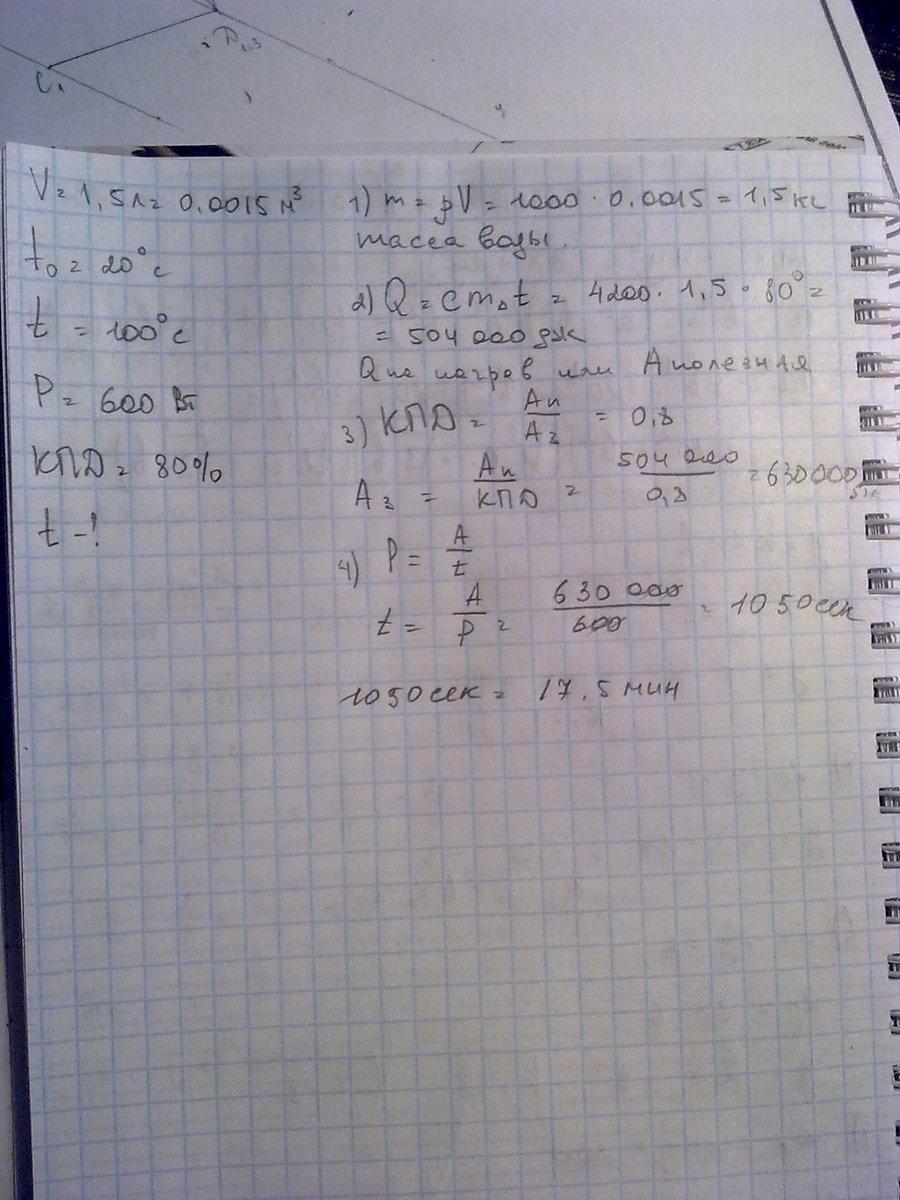 C₁
V = 1,5л = 0,0015 м³
t₀ = 20°c
t = 100°c
P = 600 Вт
КПД = 80%
t -?
1) m = ρV = 1000 · 0,0015 = 1,5 кг
масса воды.
2) Q = cm△t = 4200 · 1,5 · 80° =
= 504 000 дж
Q на нагрев или A полезная
3) КПД = Aп/Aз = 0,8
Aз = Aп/КПД = 504 000/0,8 = 630000 дж
4) P = A/t
t = A/P = 630 000/600 = 1050 сек
1050 сек = 17,5 мин